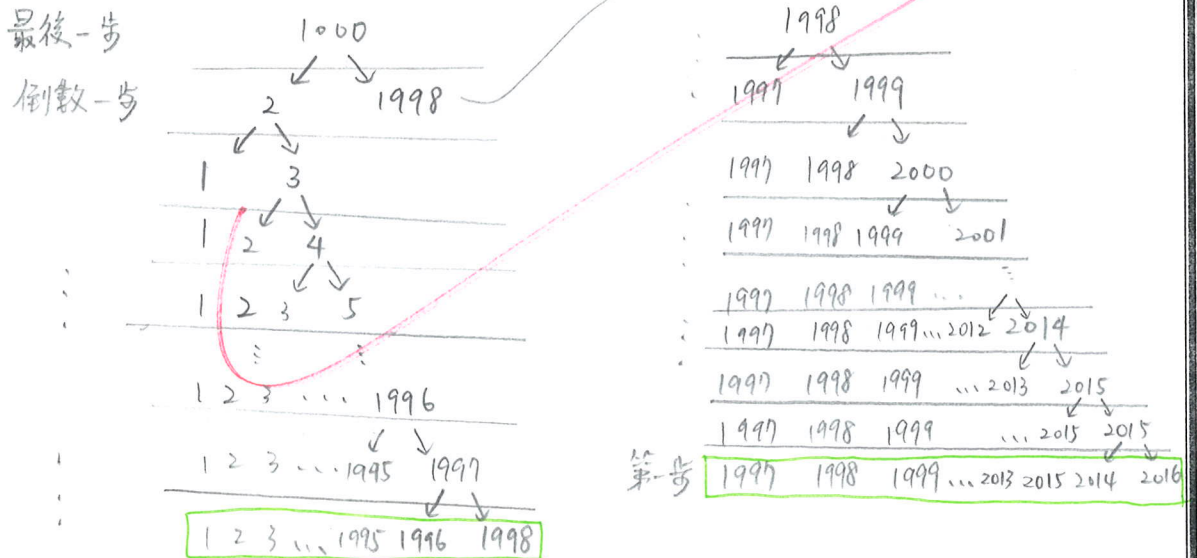 最後一步
1000
倒數一步
2 1998
1 3
1 2 4
1 2 3 5
1 2 3 ... 1996
1 2 3 ... 1995 1997
1 2 3 ... 1995 1996 1998
1998
1997 1999
1997 1998 2000
1997 1998 1999 2001
1997 1998 1999 ...
1997 1998 1999 ... 2012 2014
1997 1998 1999 ... 2013 2015
1997 1998 1999 ... 2015 2015
第一步 1997 1998 1999 ... 2013 2015 2014 2016